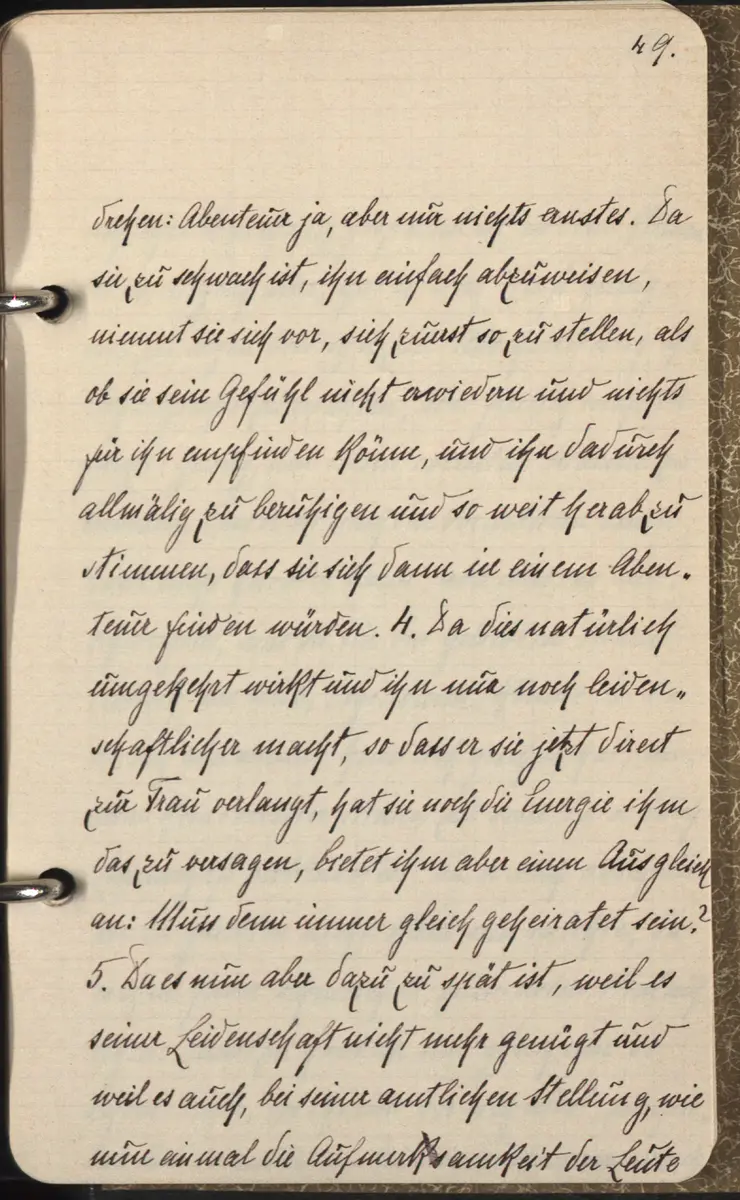 49.
drehen: Abenteuer ja, aber nur nichts ernstes. Da
sie zu schwach ist, ihn einfach abzuweisen,
nimmt sie sich vor, sich zuerst so zu stellen, als
ob sie sein Gefühl nicht erwiedern und nichts
für ihn empfinden könne, und ihn dadurch
allmälig zu beruhigen und so weit herab zu
stimmen, dass sie sich dann in einem Aben„
teuer finden würden. 4. Da dies natürlich
umgekehrt wirkt und ihn nur noch leiden„
schaftlicher macht, so dass er sie jetzt direct
zur Frau verlangt, hat sie noch die Energie ihm
das zu versagen, bietet ihm aber einen Ausgleich
an: Muss denn immer gleich geheiratet sein?
5. Da es nun aber dazu zu spät ist, weil es
seiner Leidenschaft nicht mehr genügt und
weil es auch, bei seiner amtlichen Stellung, wie
nun einmal die Aufmerksamkeit der Leute